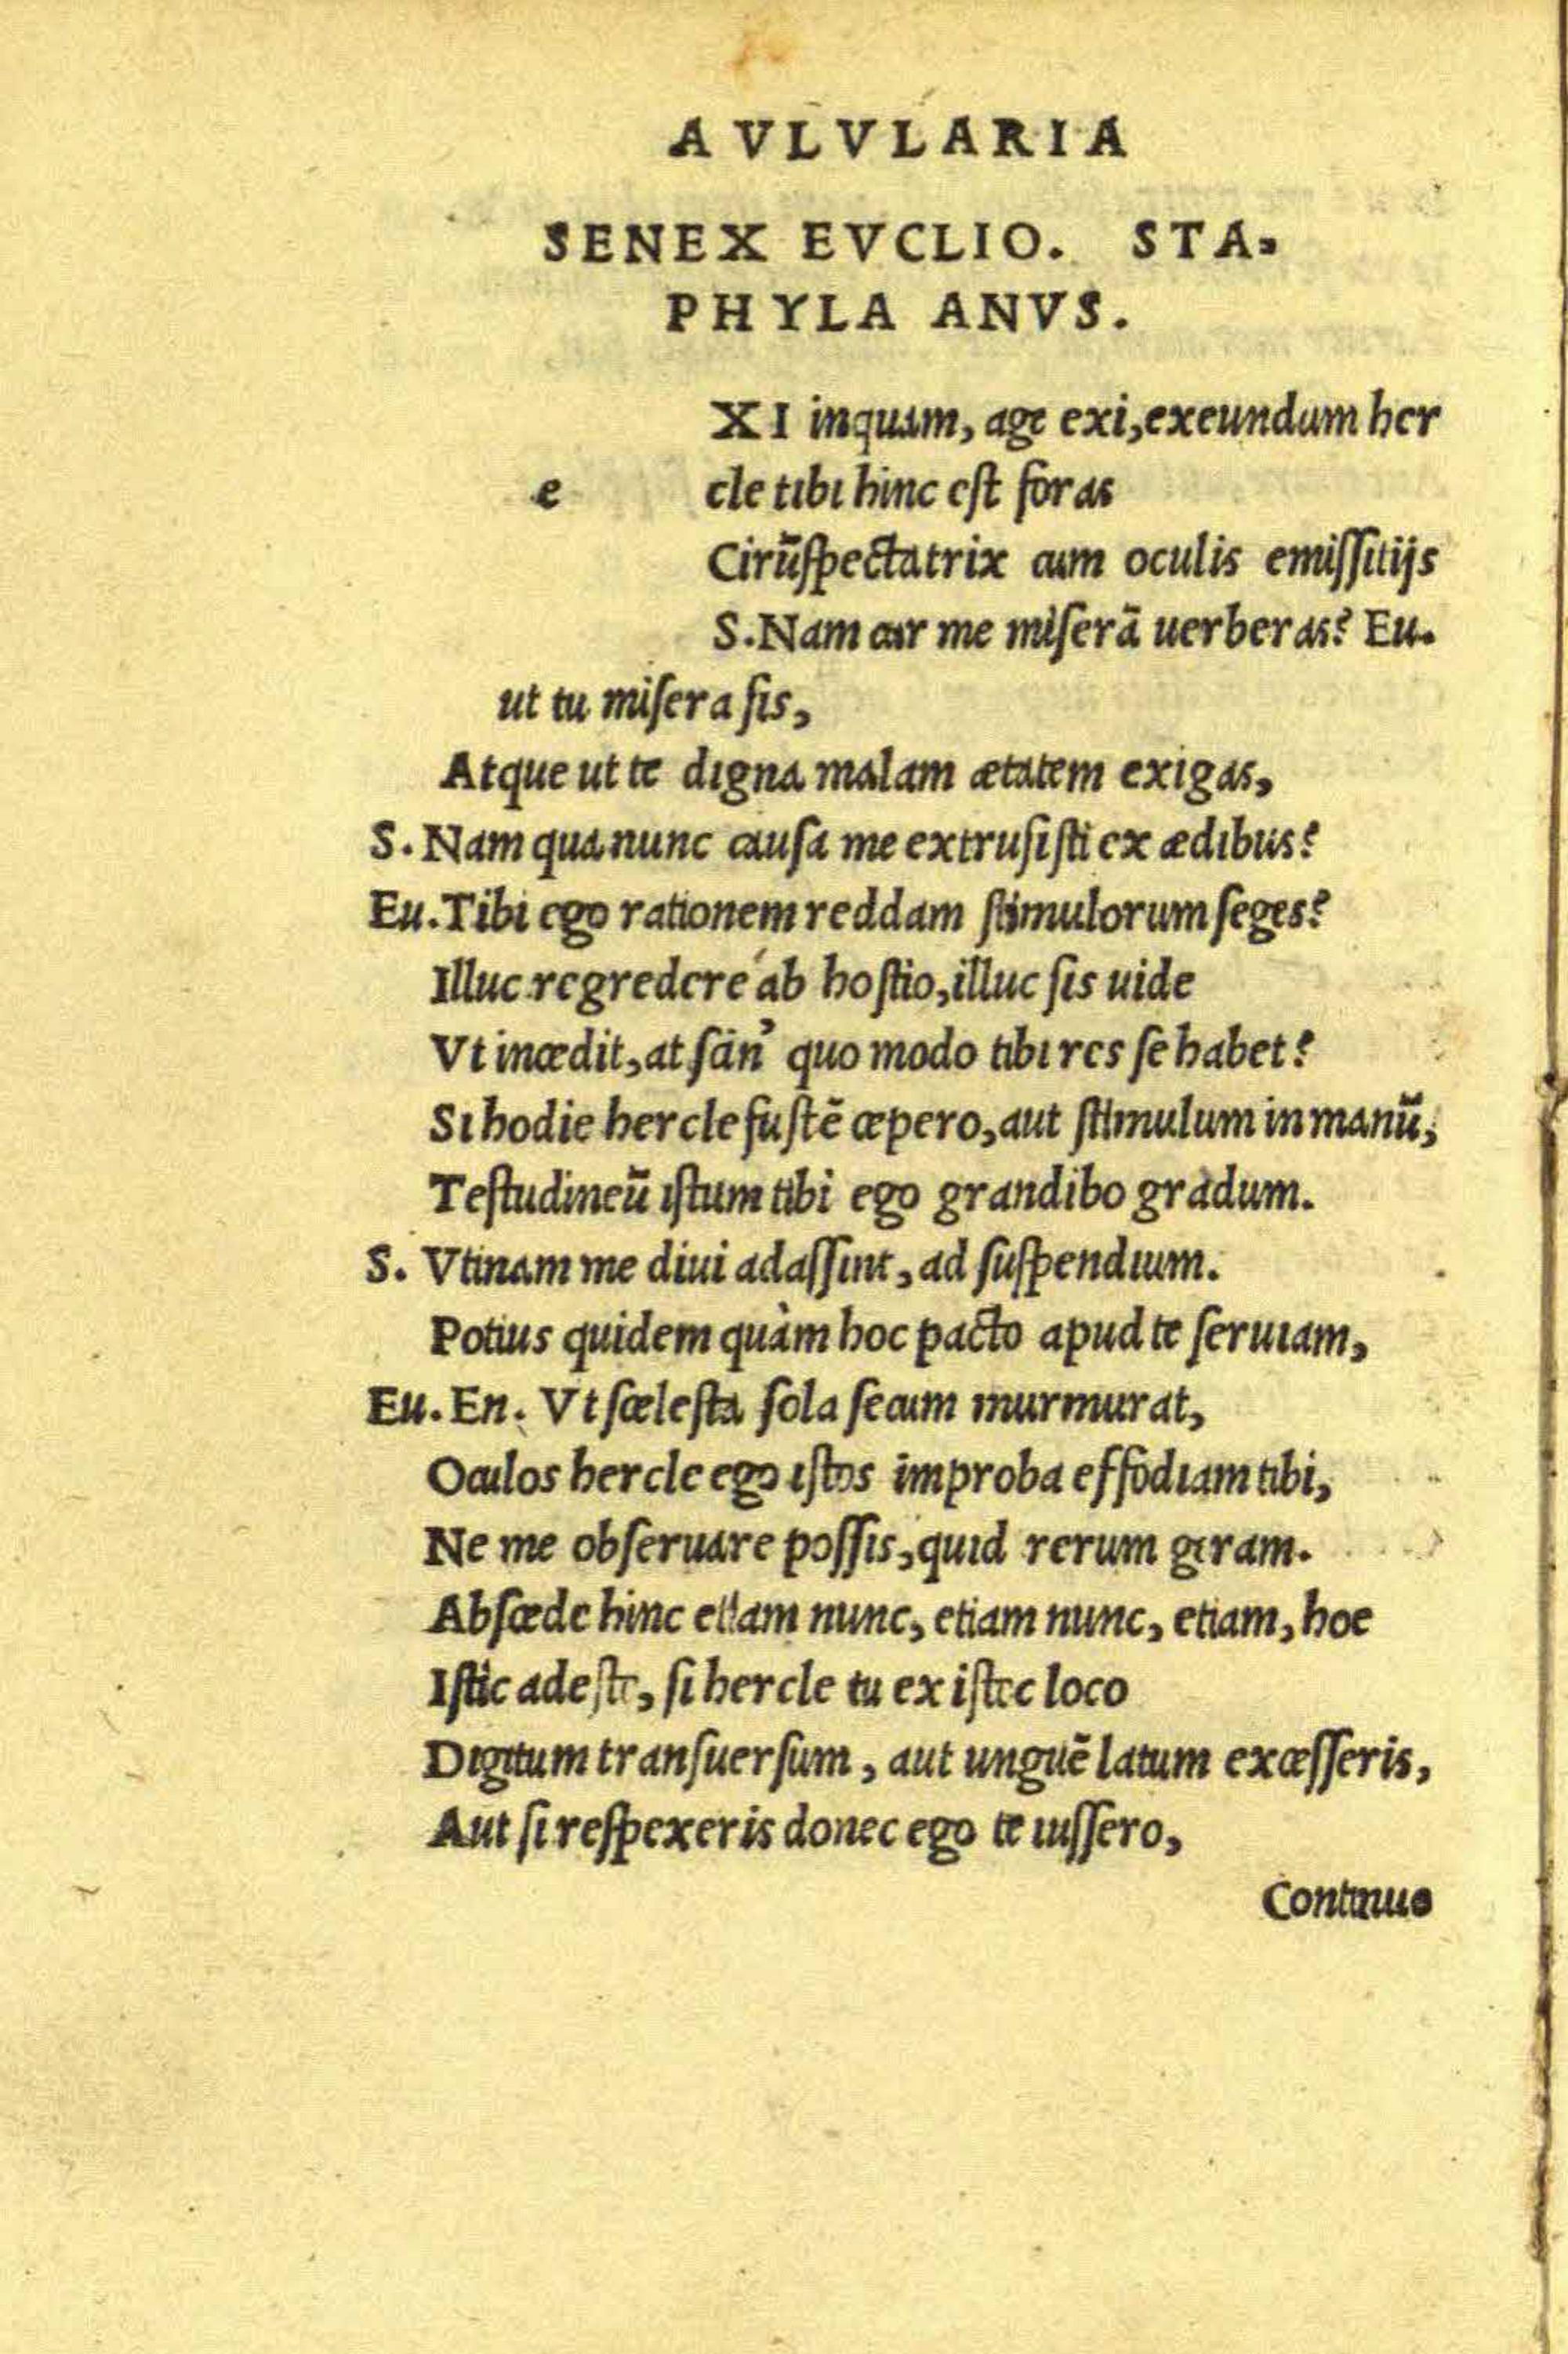 AVLVLARIA
SENEX EVCLIO. STA-
PHYLA ANVS.
XI inquam, age exi, exeundum her
e cle tibi hinc est foras
Cirūspectatrix cum oculis emissitijs
S. Nam cur me miserā uerberas? Eu.
ut tu misera sis,
Atque ut te digna malam ætatem exigas,
S. Nam qua nunc causa me extrusisti ex ædibus?
Eu. Tibi ego rationem reddam stimulorum seges?
Illuc regredere ab hostio, illuc sis uide
Vt incedit, at sān' quo modo tibi res se habet?
Si hodie hercle fustē cepero, aut stimulum in manū,
Testudineū istum tibi ego grandibo gradum.
S. Vtinam me diui adassint, ad suspendium.
Potius quidem quàm hoc pacto apud te seruiam,
Eu. En. Vt scelesta sola secum murmurat,
Oculos hercle ego istos improba effodiam tibi,
Ne me obseruare possis, quid rerum geram.
Abscede hinc etiam nunc, etiam nunc, etiam, hoe
Istic adeste, si hercle tu ex istec loco
Digitum transuersum, aut unguē latum excesseris,
Aut si respexeris donec ego te iussero,
Continuo